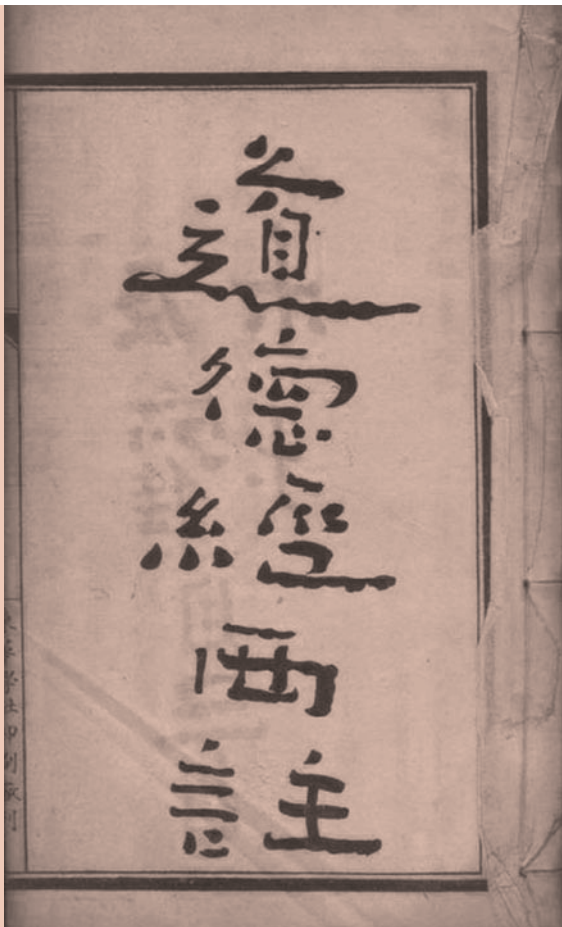 道德經酉註